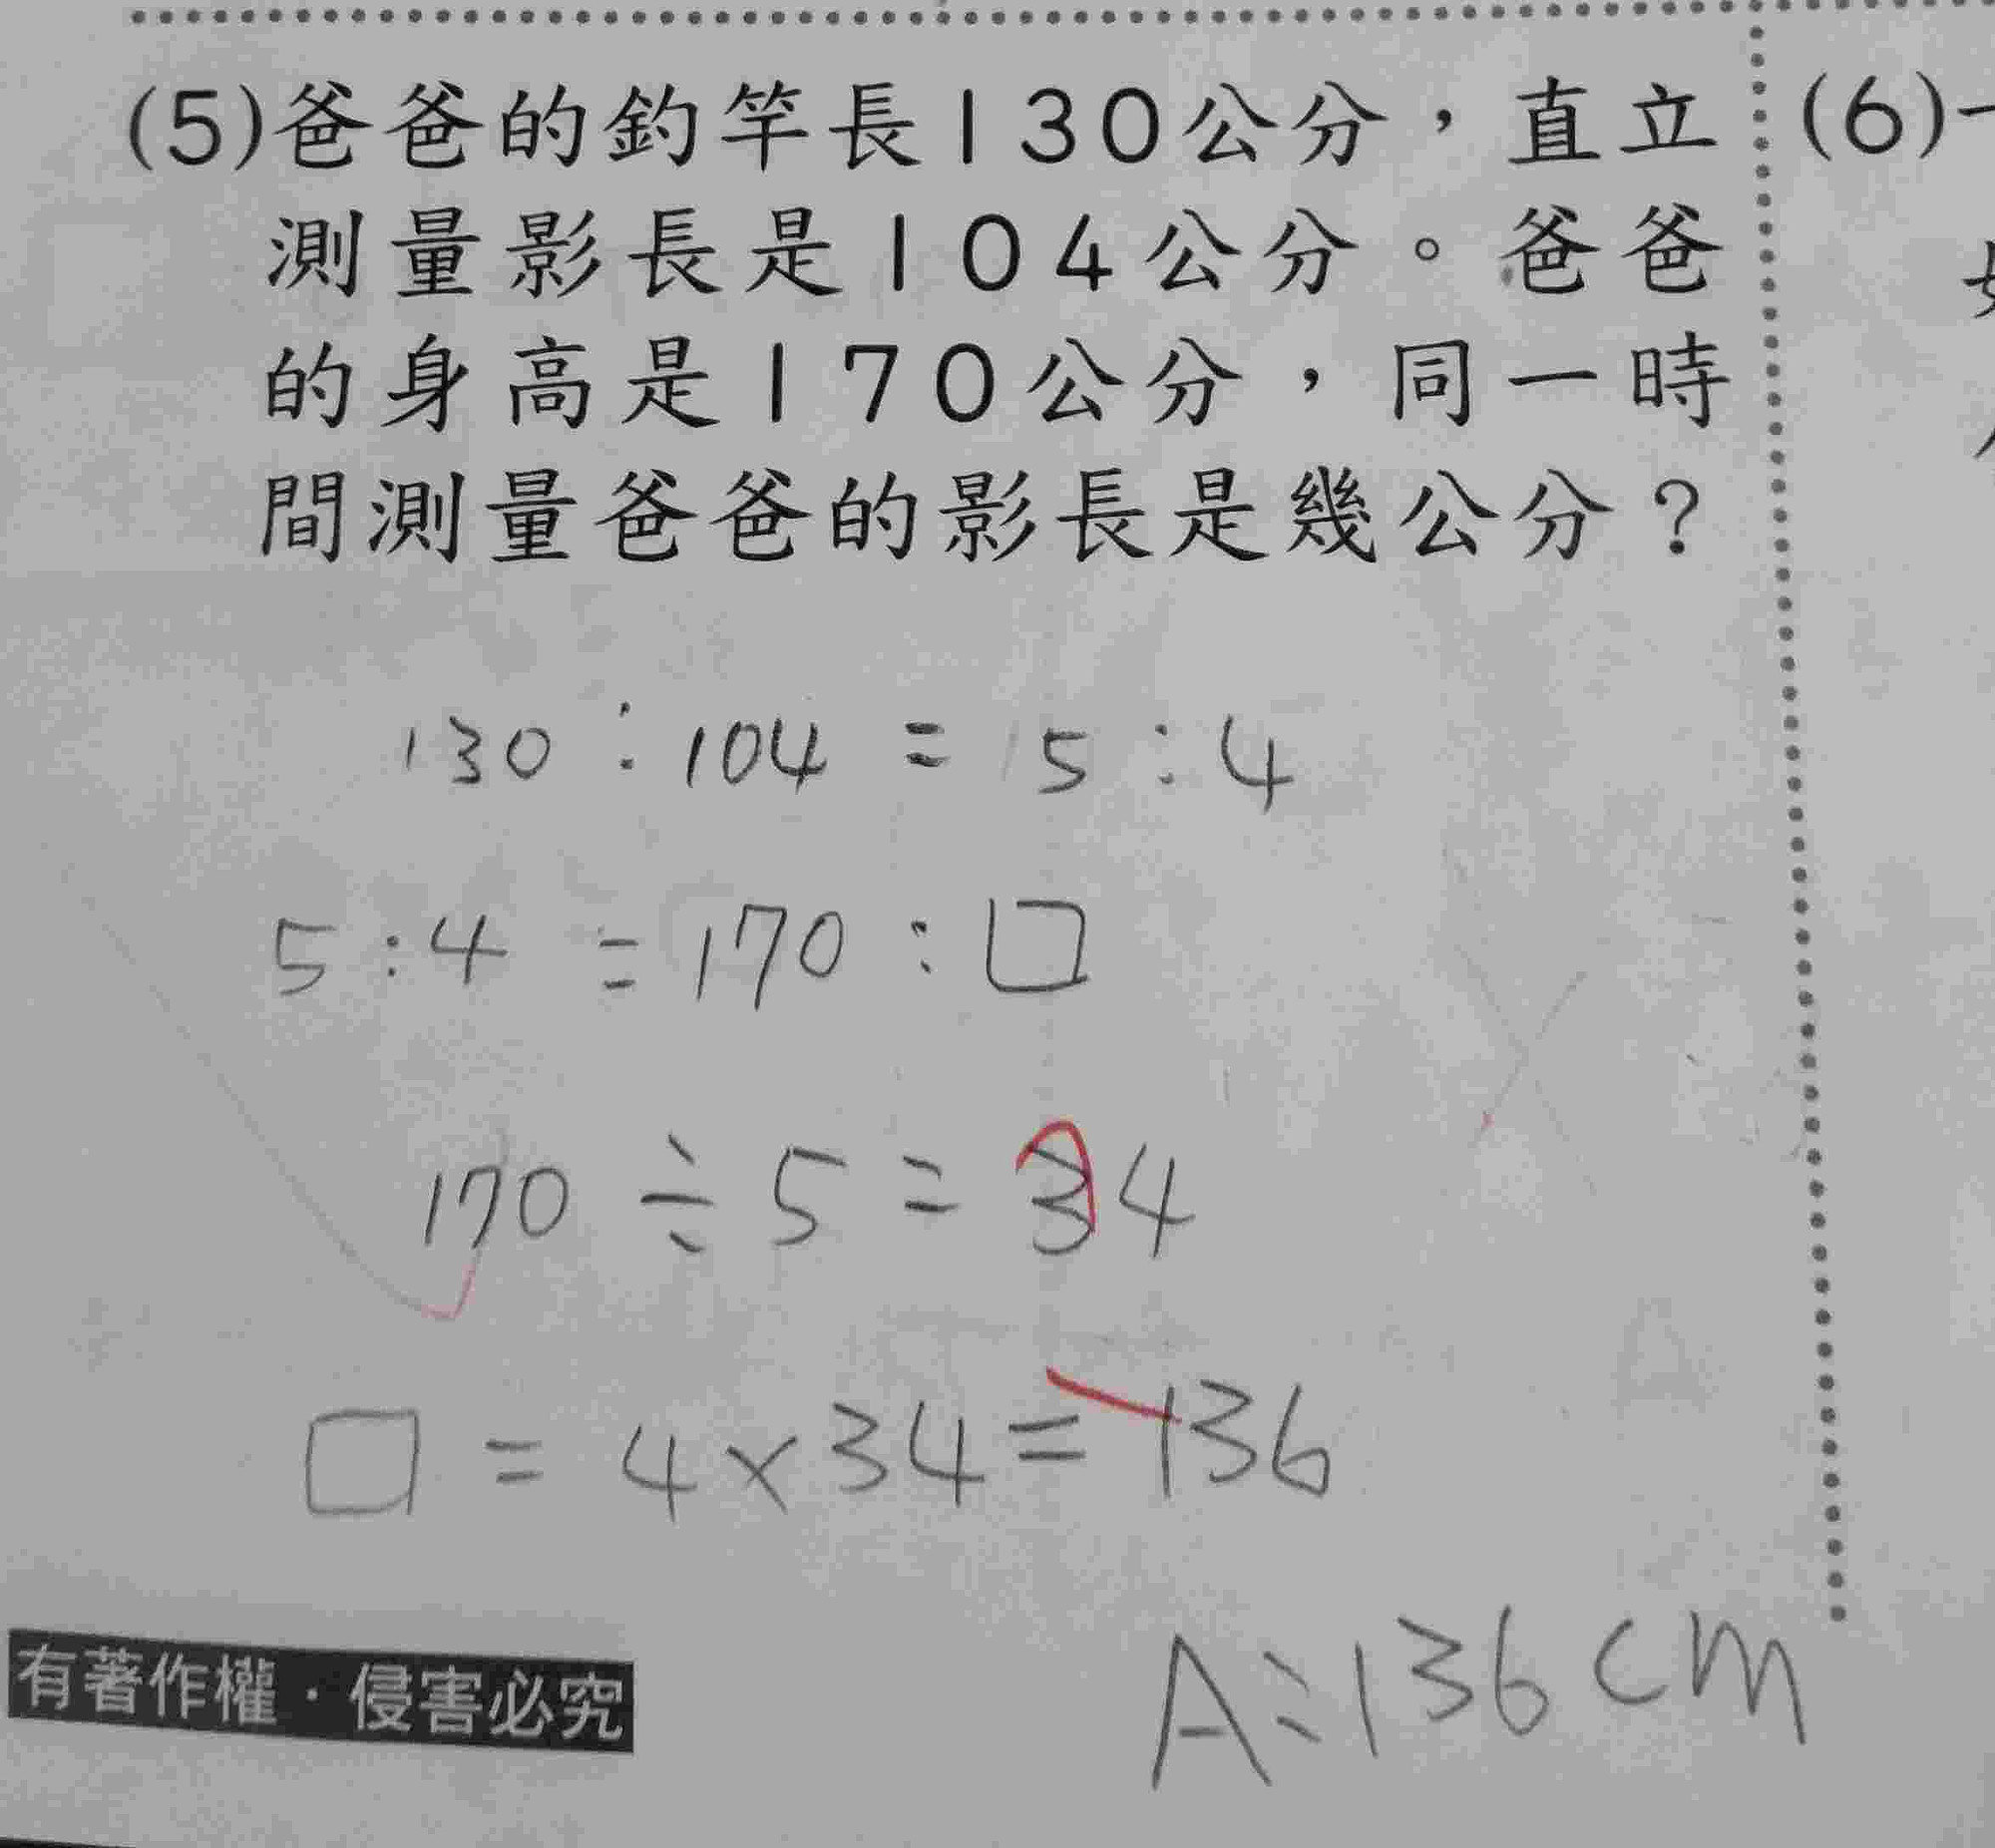 (5)爸爸的釣竿長130公分，直立 (6)一
測量影長是104公分。爸爸
的身高是170公分，同一時
間測量爸爸的影長是幾公分？
130:104=5:4
5:4=170:□
170÷5=34
□=4×34=136
A:136cm
有著作權·侵害必究